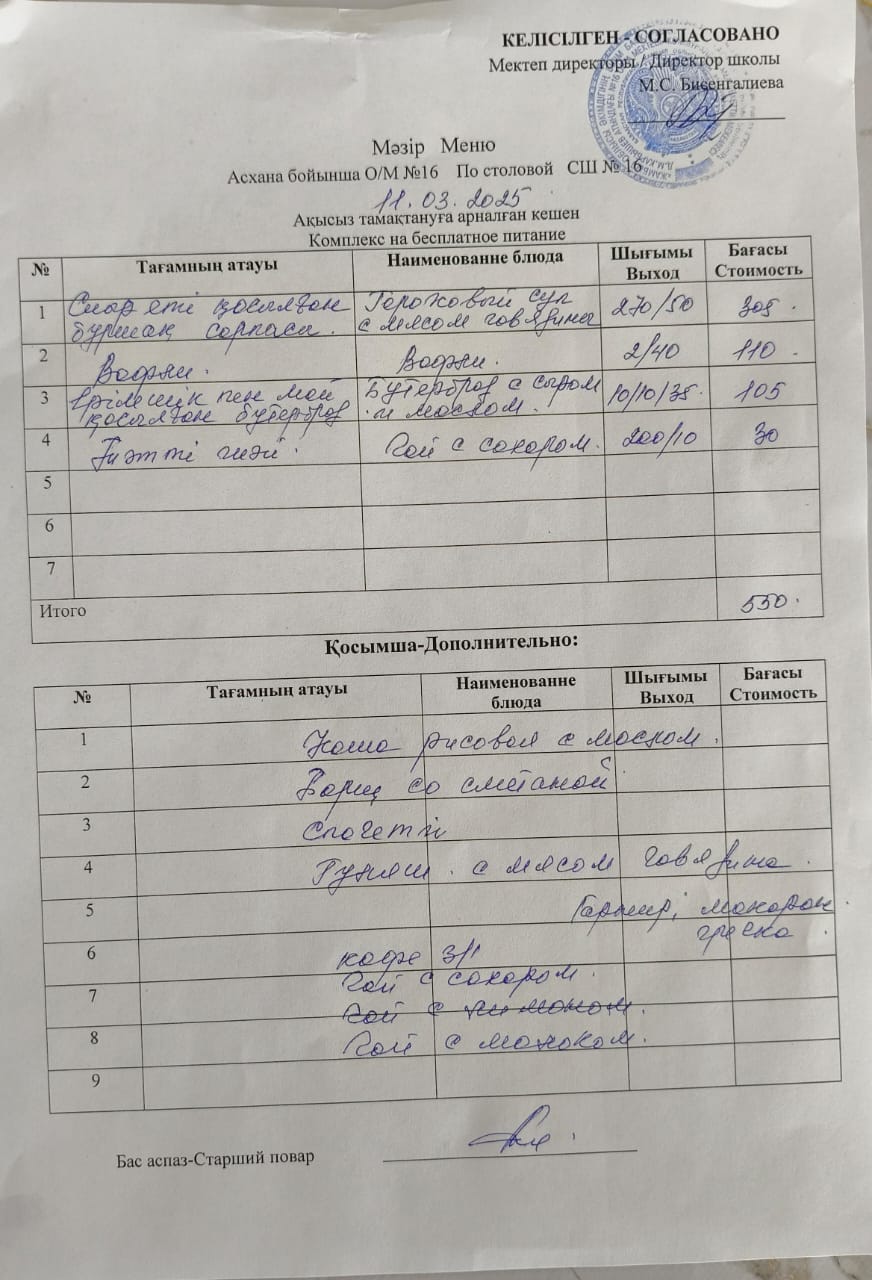 КЕЛІСІЛГЕН - СОГЛАСОВАНО
Мектеп директоры / Директор школы
М.С. Бисенгалиева
Мәзір Меню
Асхана бойынша О/М №16 По столовой СШ № 16
11.03.2025
Ақысыз тамақтануға арналған кешен
Комплекс на бесплатное питание
№ Тағамның атауы Наименованне блюда Шығымы Выход Бағасы Стоимость
1 Сиыр еті қосылған бұршақ сорпасы. Гороховый суп с мясом говядина 270/50 305.
2 Вафли. Вафли. 2/40 110
3 Ірімшік пен май қосылған бутерброд Бутерброд с сыром и маслом. 10/10/35. 105
4 Тәтті шәй. Чай с сахаром. 200/10 30
5
6
7
Итого 550.
Қосымша-Дополнительно:
№ Тағамның атауы Наименованне блюда Шығымы Выход Бағасы Стоимость
1 Каша рисовая с маслом.
2 Борщ со сметаной.
3 Спагетти
4 Гуляш. с мясом говядина.
5 Гарнир; макарон гречка.
6 кофе 3/1
7 Чай с сахаром.
Чай с лимоном.
8 Чай с молоком.
9
Бас аспаз-Старший повар